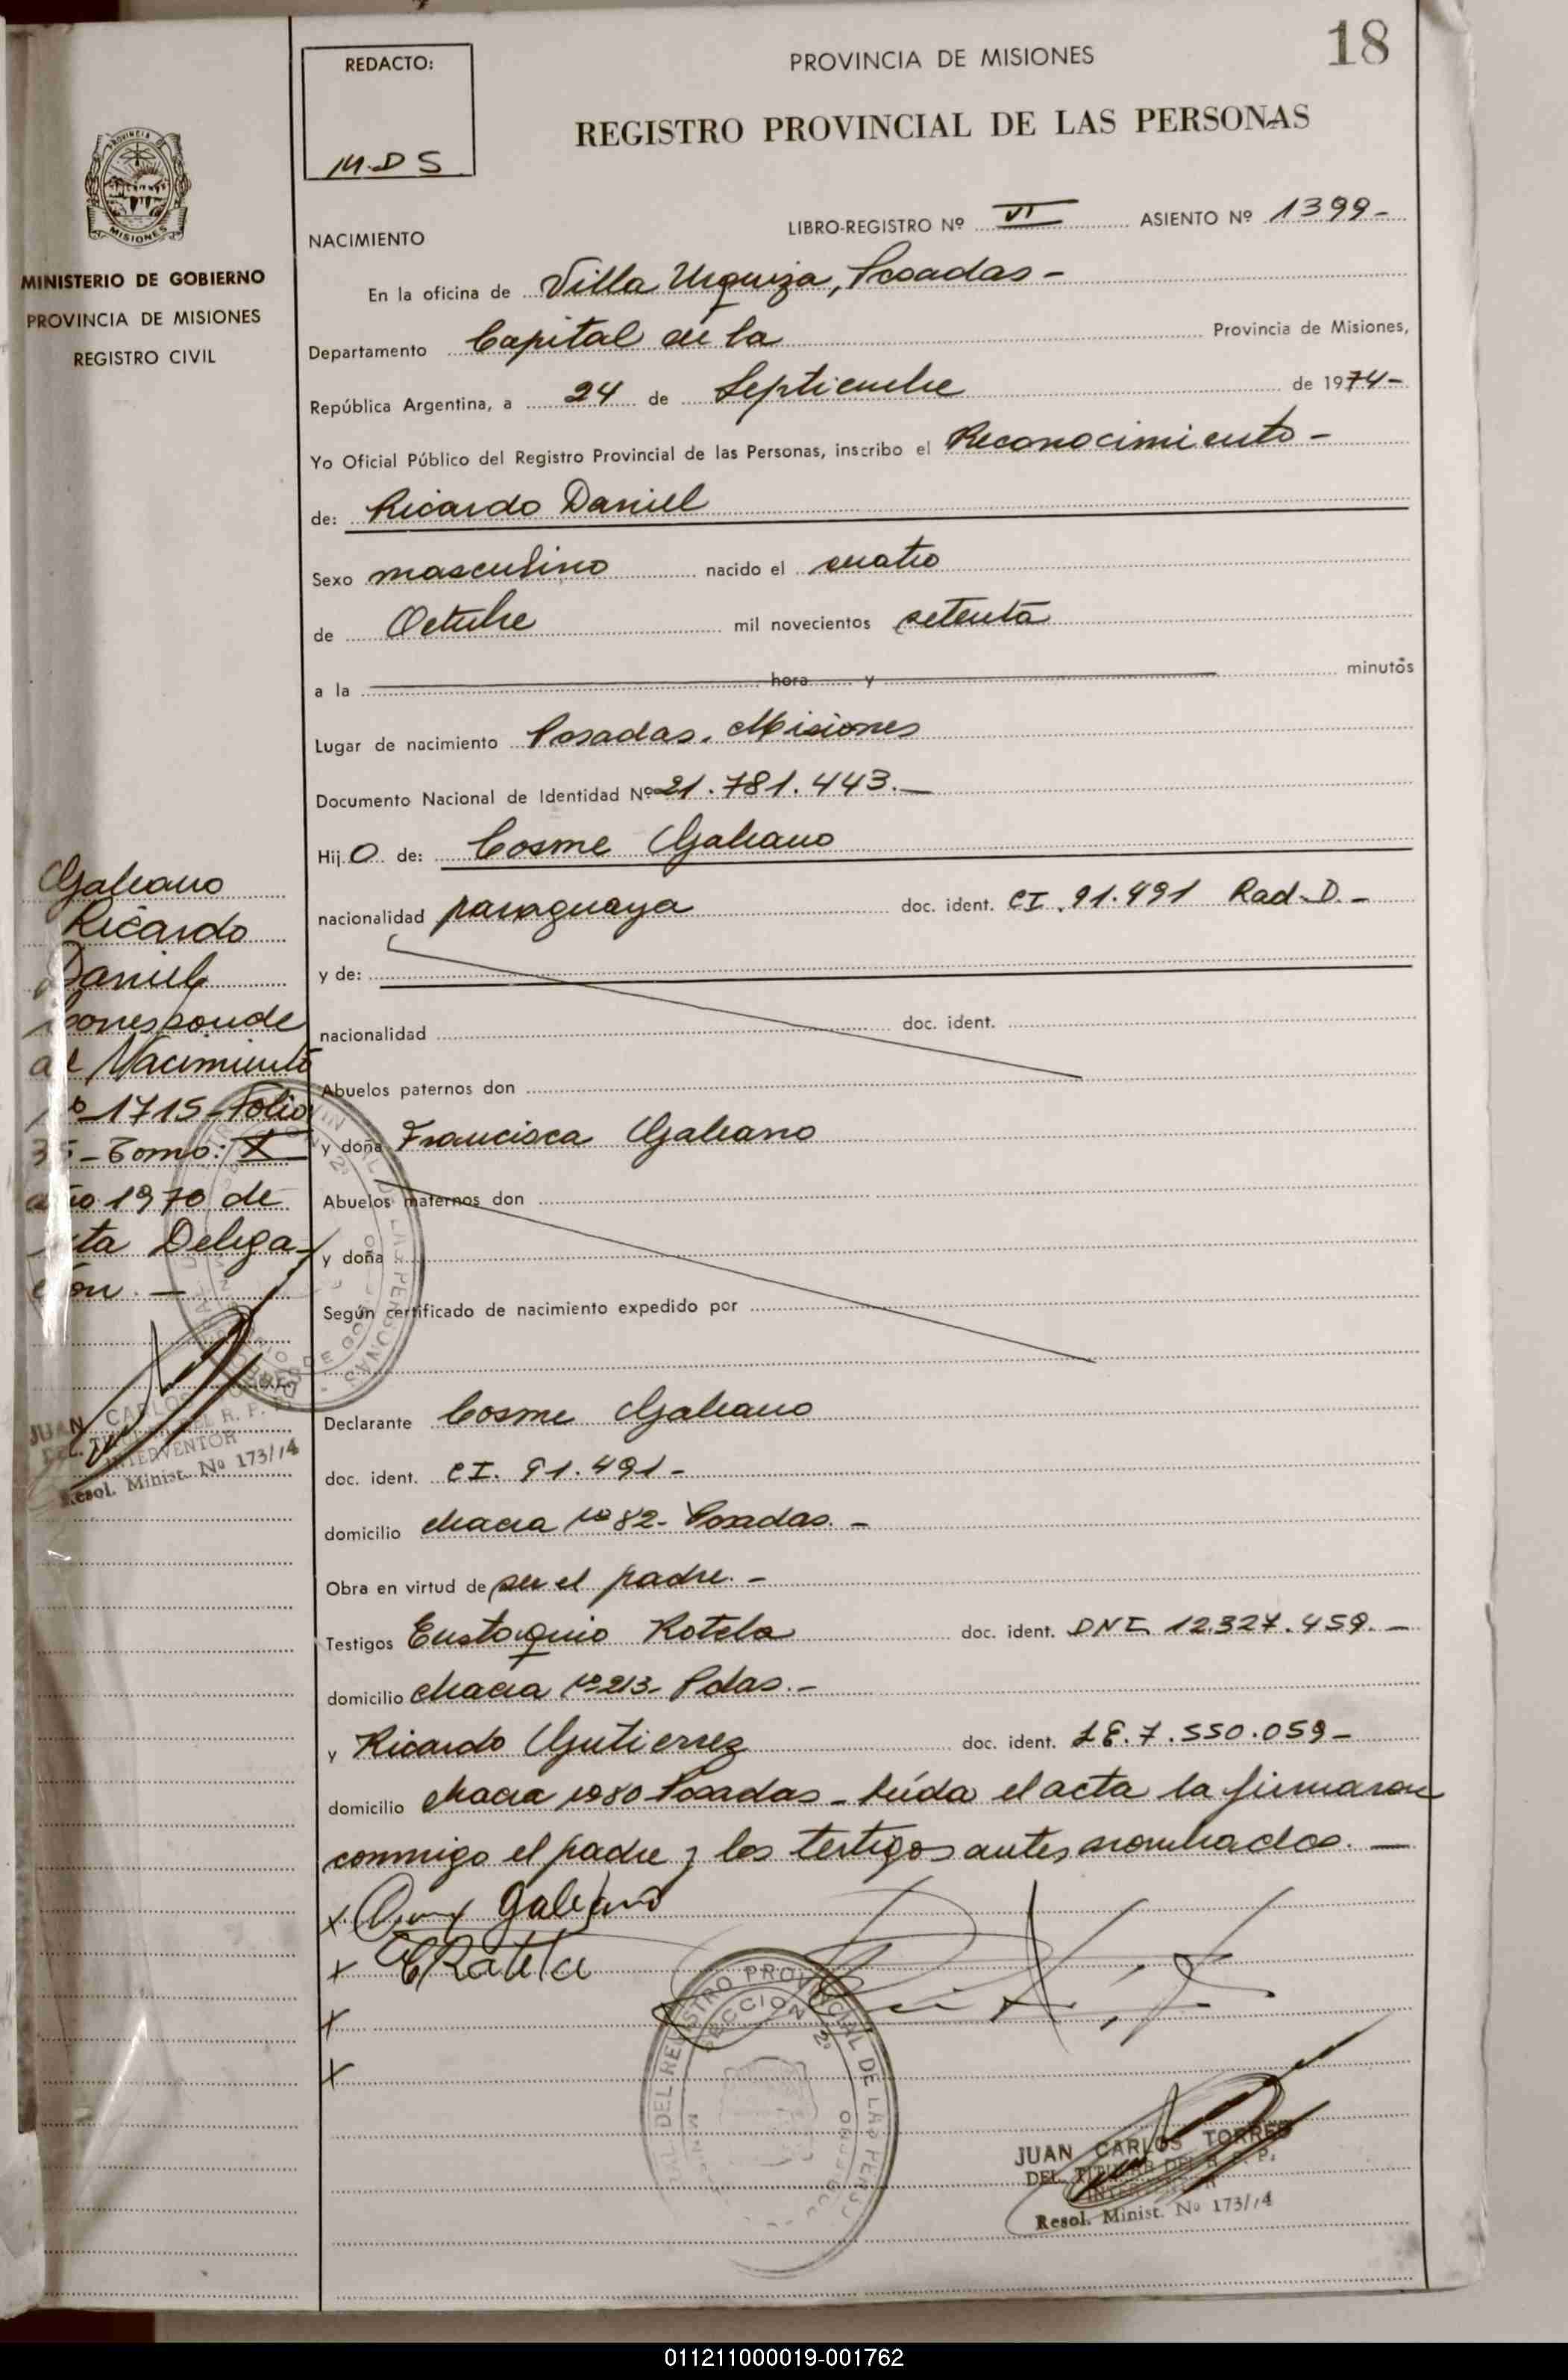 18
REDACTO:
M.D S
PROVINCIA DE MISIONES
REGISTRO PROVINCIAL DE LAS PERSONAS
MISIONES
MINISTERIO DE GOBIERNO
PROVINCIA DE MISIONES
REGISTRO CIVIL
NACIMIENTO
LIBRO-REGISTRO Nº VI ASIENTO Nº 1399-
En la oficina de Villa Urquiza, Posadas-
Departamento Capital de la Provincia de Misiones,
República Argentina, a 24 de Septiembre de 1974-
Yo Oficial Público del Registro Provincial de las Personas, inscribo el Reconocimiento-
de: Ricardo Daniel
Sexo masculino nacido el cuatro
de Octubre mil novecientos setenta
a la hora y minutos
Lugar de nacimiento Posadas. Misiones
Documento Nacional de Identidad Nº 21.781.443.-
Hij O de: Cosme Galeano
nacionalidad paraguaya doc. ident. CI. 91.491 Rad.D.-
y de:
nacionalidad doc. ident.
Abuelos paternos don
y doña Francisca Galeano
Abuelos maternos don
y doña
Según certificado de nacimiento expedido por
Declarante Cosme Galeano
doc. ident. CI. 91.491-
domicilio chacra Nº 82- Posadas.-
Obra en virtud de ser el padre.-
Testigos Eustaquio Rotela doc. ident. DNI 12.327.459.-
domicilio chacra Nº 213- Pdas.-
y Ricardo Gutierrez doc. ident. LE.7.550.059-
domicilio chacra Nº 80 Posadas- leída el acta la firmaron
conmigo el padre y los testigos antes nombrados.-
x Galeano
x E Rotela
x
x
Galeano
Ricardo
Daniel
Corresponde
al Nacimiento
Nº 1715-Folio
35-Tomo: X
año 1970 de
esta Delega-
ción.-
JUAN CARLOS TORRES
DEL. TITULAR DEL R. P. P.
INTERVENTOR
Resol. Minist. Nº 173/74
REGISTRO PROVINCIAL DE LAS PERSONAS
SECCION 2º
JUAN CARLOS TORRES
DEL. TITULAR DEL R. P. P.
INTERVENTOR
Resol. Minist. Nº 173/74
011211000019-001762